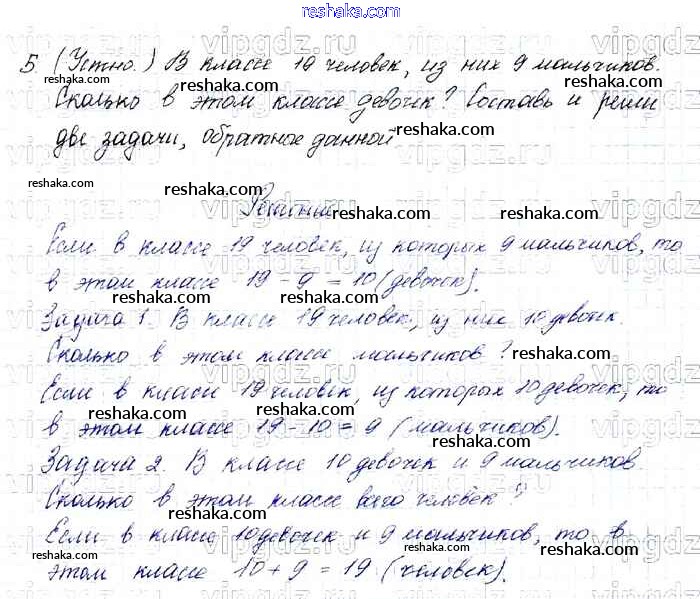 reshaka.com
5. (Устно.) В классе 19 человек, из них 9 мальчиков.
Сколько в этом классе девочек? Составь и реши
две задачи, обратное данной
Решение
Если в классе 19 человек, из которых 9 мальчиков, то
в этом классе 19 - 9 = 10 (девочек).
Задача 1. В классе 19 человек, из них 10 девочек.
Сколько в этом классе мальчиков?
Если в классе 19 человек, из которых 10 девочек, то
в этом классе 19 - 10 = 9 (мальчиков).
Задача 2. В классе 10 девочек и 9 мальчиков
Сколько в этом классе всего человек?
Если в классе 10 девочек и 9 мальчиков, то в
этом классе 10 + 9 = 19 (человек).